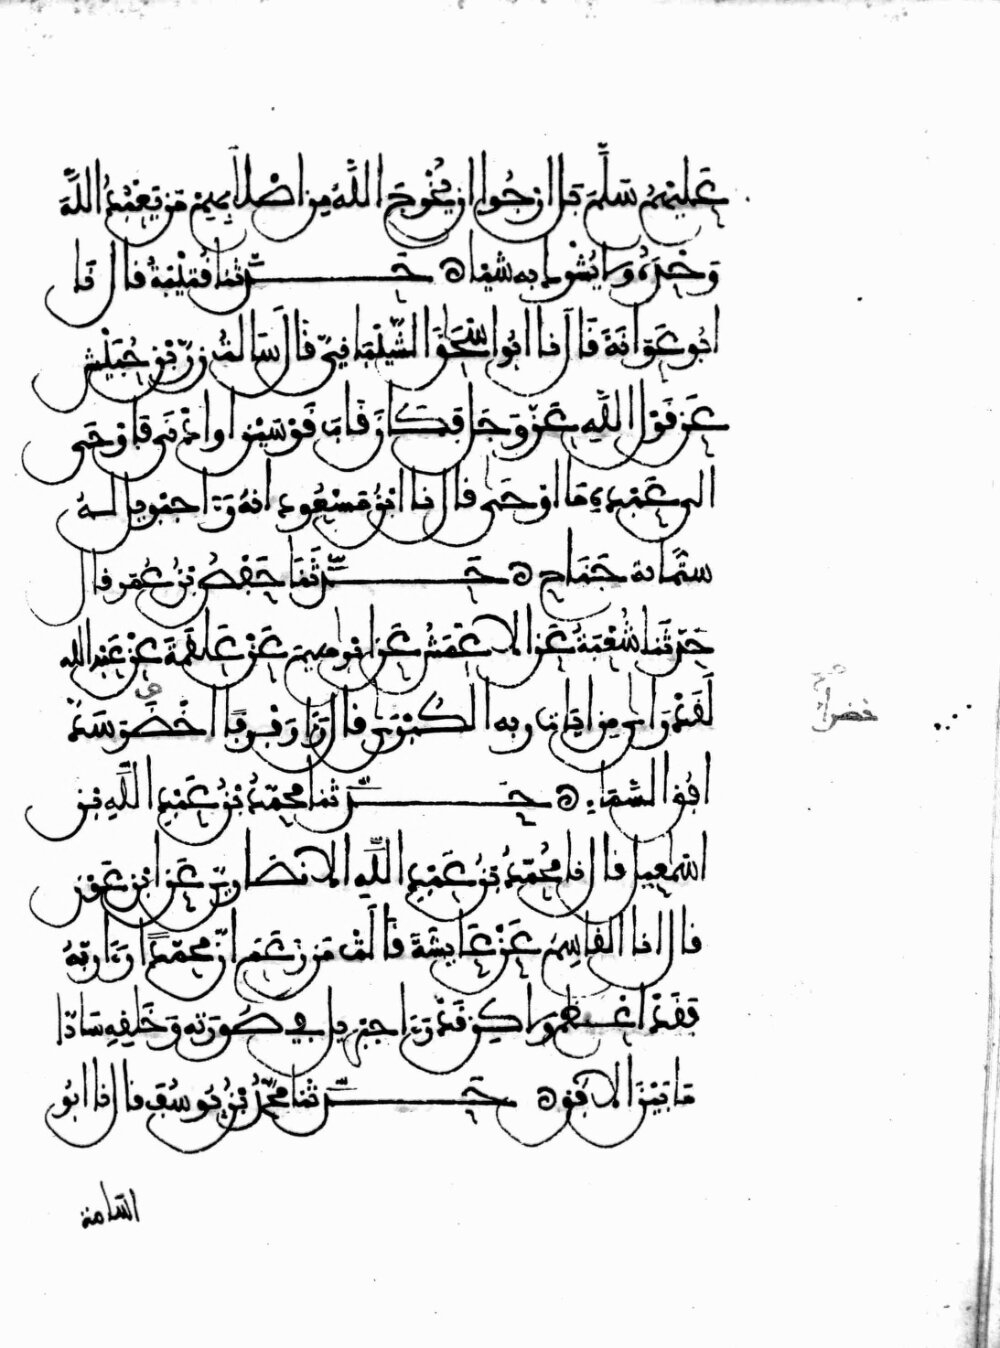 عَلَيْهِ وَسَلَّمَ بَلْ أَرْجُوا أَنْ يُخْرِجَ اللَّهُ مِنْ أَصْلَابِهِمْ مَنْ يَعْبُدُ اللَّهَ
وَحْدَهُ وَلَا يُشْرِكُ بِهِ شَيْئًا ه حَــــدَّثَنَا قُتَيْبَةُ قَالَ نَا
أَبُو عَوَانَةَ قَالَ نَا أَبُو إِسْحَاقَ الشَّيْبَانِيُّ قَالَ سَأَلْتُ زِرَّ بْنَ حُبَيْشٍ
عَنْ قَوْلِ اللَّهِ عَزَّ وَجَلَّ فَكَانَ قَابَ قَوْسَيْنِ أَوْ أَدْنَى فَأَوْحَى
إِلَى عَبْدِهِ مَا أَوْحَى قَالَ نَا ابْنُ مَسْعُودٍ أَنَّهُ رَءَا جِبْرِيلَ لَهُ
سِتُّمِائَةِ جَنَاحٍ ه حَــــدَّثَنَا حَفْصُ بْنُ عُمَرَ قَالَ
حَدَّثَنَا شُعْبَةُ عَنِ الْأَعْمَشِ عَنْ إِبْرَاهِيمَ عَنْ عَلْقَمَةَ عَنْ عَبْدِ اللَّهِ
لَقَدْ رَأَى مِنْ آيَاتِ رَبِّهِ الْكُبْرَى قَالَ رَءَا رَفْرَفًا أَخْضَرَ سَدَّ
خضرا
أُفُقَ السَّمَاءِ ه حَــــدَّثَنَا مُحَمَّدُ بْنُ عَبْدِ اللَّهِ بْنِ
إِسْمَعِيلَ قَالَ نَا مُحَمَّدُ بْنُ عَبْدِ اللَّهِ الْأَنْصَارِيُّ عَنِ ابْنِ عَوْنٍ
قَالَ أَنَا الْقَاسِمُ عَنْ عَائِشَةَ قَالَتْ مَنْ زَعَمَ أَنَّ مُحَمَّدًا رَءَا رَبَّهُ
فَقَدْ أَعْظَمَ وَلَكِنْ قَدْ رَءَا جِبْرِيلَ فِي صُورَتِهِ وَخَلْقِهِ سَادًّا
مَا بَيْنَ الْأُفُقِ ه حَــــدَّثَنَا مُحَمَّدُ بْنُ يُوسُفَ قَالَ نَا أَبُو
الثامنة